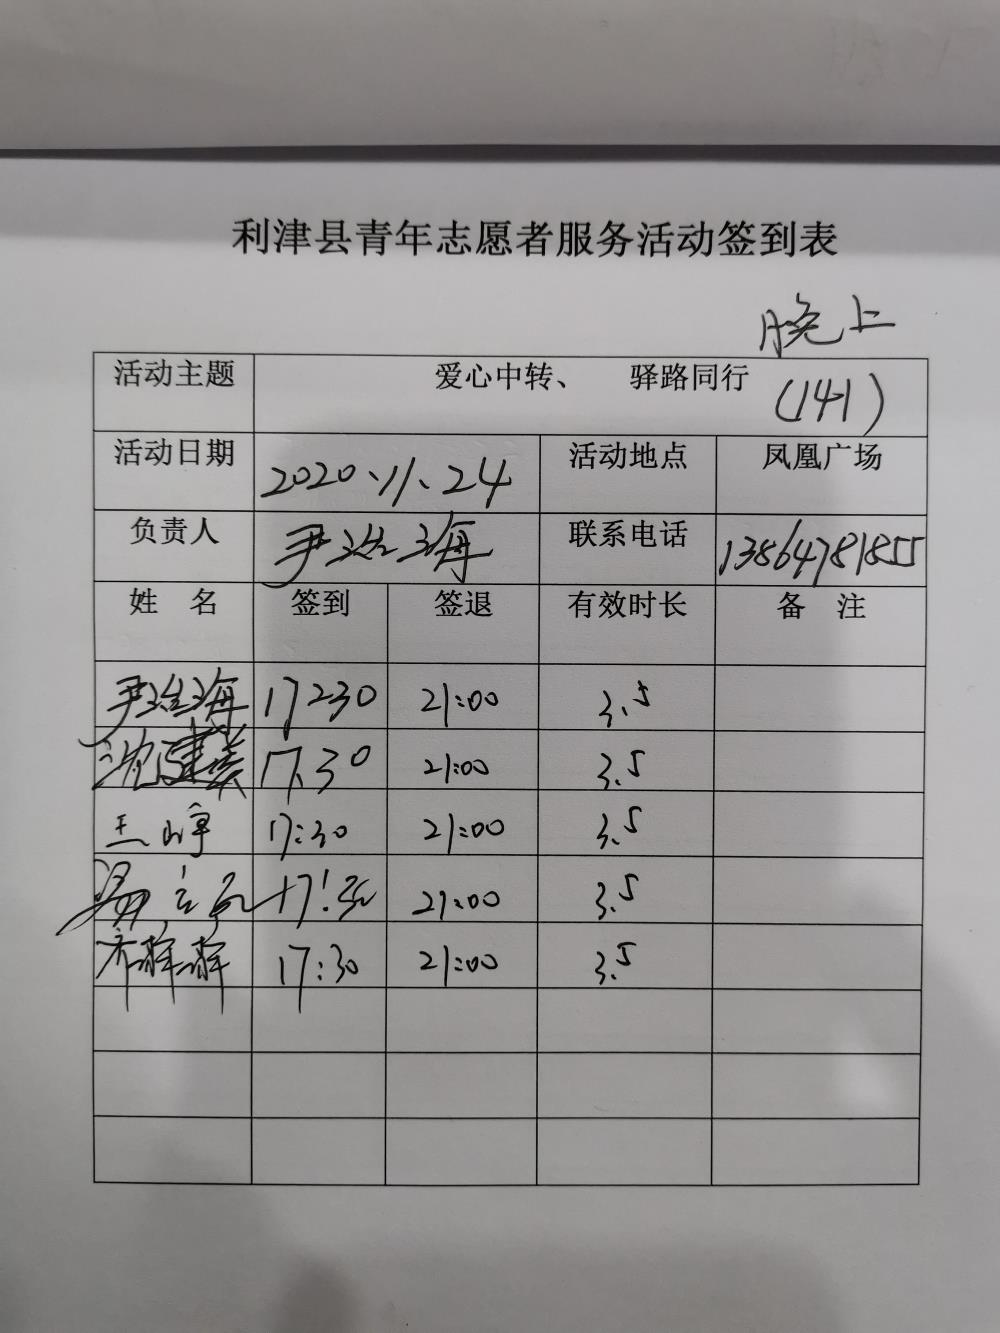 利津县青年志愿者服务活动签到表
晚上
活动主题 爱心中转、 驿路同行 (141)
活动日期 2020.11.24 活动地点 凤凰广场
负责人 尹治海 联系电话 13864781855
姓 名 签到 签退 有效时长 备 注
尹治海 17:30 21:00 3.5
沈建美 17.30 21:00 3.5
王婷 17:30 21:00 3.5
17:30 21:00 3.5
齐辉辉 17:30 21:00 3.5